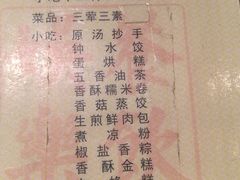 菜品:三荤三素
小吃:原汤抄手
钟水饺
蛋烘糕
五香油茶
香酥糯米卷
香菇蒸饺
生煎鲜肉包
煮凉粉
椒盐香粽
香酥金糕